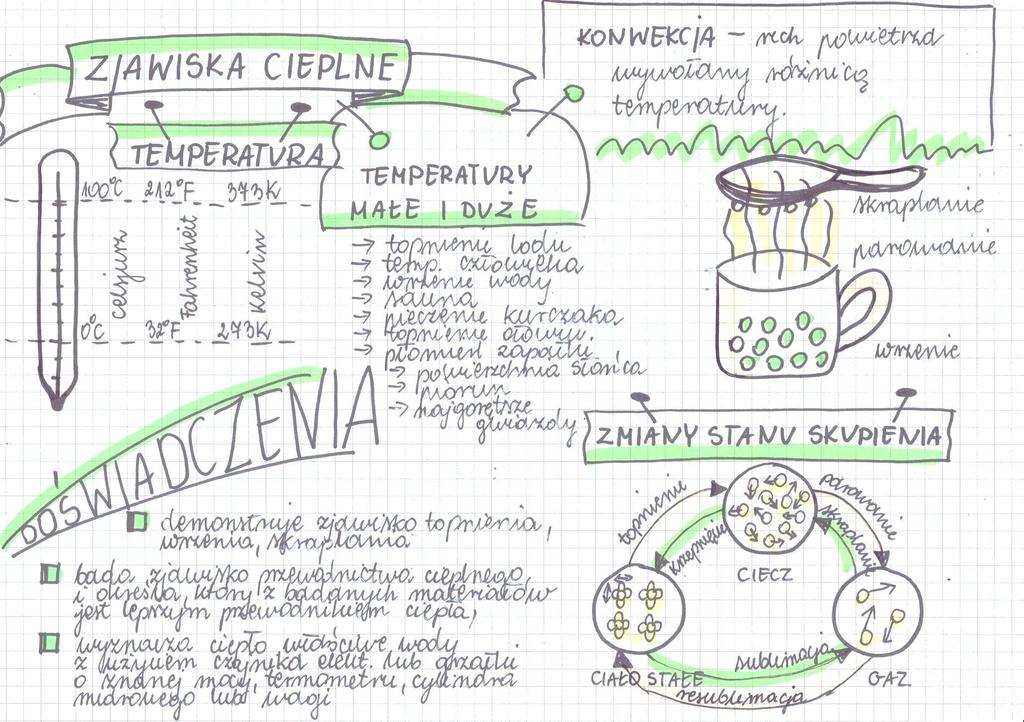 ZJAWISKA CIEPLNE
TEMPERATURA
100°C 212°F 373K
Celsjusz
Fahrenheit
Kelvin
0°C 32°F 273K
TEMPERATURY
MAŁE I DUŻE
→ topnienie lodu
→ temp. człowieka
→ wrzenie wody
→ sauna
→ pieczenie kurczaka
→ topnienie ołowiu.
→ płomień zapałki
→ powierzchnia słońca
→ piorun
→ najgorętsze
gwiazdy
KONWEKCJA – ruch powietrza
wywołany różnicą
temperatury.
skraplanie
parowanie
wrzenie
DOŚWIADCZENIA
demonstruje zjawisko topnienia,
wrzenia, skraplania
bada zjawisko przewodnictwa cieplnego
i określa, który z badanych materiałów
jest lepszym przewodnikiem ciepła,
wyznacza ciepło właściwe wody
z użyciem czajnika elekt. lub grzałki
o znanej mocy, termometru, cylindra
miarowego lub wagi
ZMIANY STANU SKUPIENIA
topnienie
krzepnięcie
parowanie
skraplanie
CIECZ
sublimacja
CIAŁO STAŁE
GAZ
resublimacja